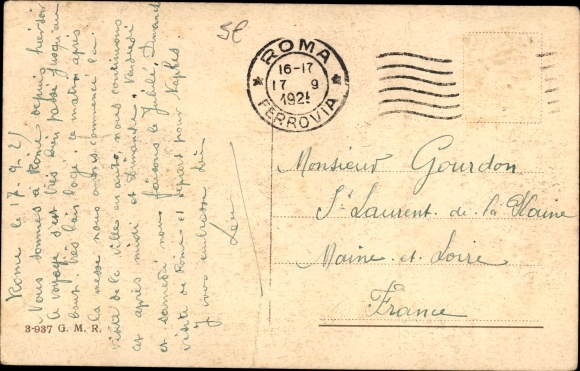 Rome le 17.9.25
Nous sommes à Rome depuis hier soir
le voyage s'est très bien passé jusqu'au
bout. Très bien logé. Ce matin après
la messe nous avons commencé la
visite de la ville en auto, nous continuons
cet après midi et dimanche. Vendredi
et samedi nous faisons le Jubilé. Dimanche
visite de Rome et départ pour Naples.
J vous embrasse bien
ROMA
16-17
17 9
192
FERROVIA
Monsieur Gourdon
St Laurent de la Plaine
Maine et Loire
France
3-937 G. M. R.